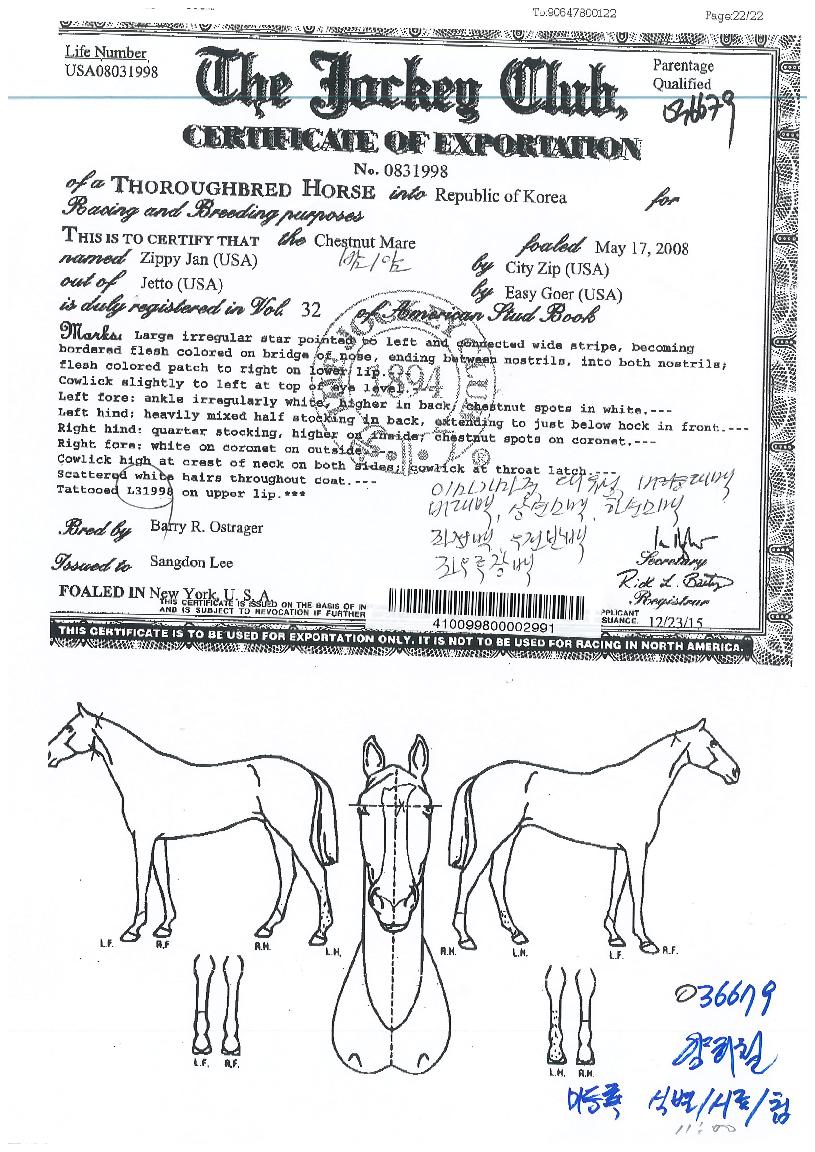 To:90647800122 Page:22/22
Life Number
USA08031998
The Jockey Club,
Parentage
Qualified
036679
CERTIFICATE OF EXPORTATION
No. 0831998
of a THOROUGHBRED HORSE into Republic of Korea for
Racing and Breeding purposes
THIS IS TO CERTIFY THAT the Chestnut Mare foaled May 17, 2008
named Zippy Jan (USA) by City Zip (USA)
out of Jetto (USA) by Easy Goer (USA)
is duly registered in Vol. 32 of American Stud Book
Marks: Large irregular star pointed to left and connected wide stripe, becoming
bordered flesh colored on bridge of nose, ending between nostrils, into both nostrils;
flesh colored patch to right on lower lip.---
Cowlick slightly to left at top of eye level.---
Left fore: ankle irregularly white, higher in back; chestnut spots in white.---
Left hind: heavily mixed half stocking in back, extending to just below hock in front.---
Right hind: quarter stocking, higher on inside; chestnut spots on coronet.---
Right fore: white on coronet on outside.---
Cowlick high at crest of neck on both sides; cowlick at throat latch.---
Scattered white hairs throughout coat.---
Tattooed L31998 on upper lip.***
THE JOCKEY CLUB
1894
®
Bred by Barry R. Ostrager
Issued to Sangdon Lee
Secretary
Registrar
FOALED IN New York, U. S. A.
THIS CERTIFICATE IS ISSUED ON THE BASIS OF IN
AND IS SUBJECT TO REVOCATION IF FURTHER
410099800002991
PPLICANT
SUANCE. 12/23/15
THIS CERTIFICATE IS TO BE USED FOR EXPORTATION ONLY. IT IS NOT TO BE USED FOR RACING IN NORTH AMERICA.
L.F. R.F. R.H. L.H. R.H. L.H. L.F. R.F.
L.F. R.F. L.H. R.H.
036679
11:00